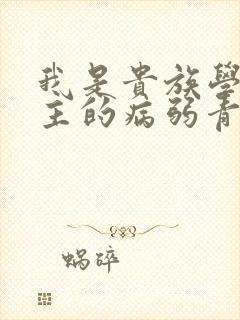 我是貴族學
主的病弱青
蝸碎